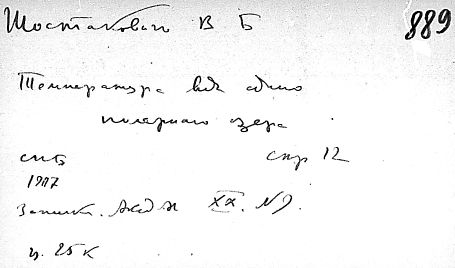 Шостакович В Б 889
Температура вод одного
полярного озера
СПБ стр 12
1907
Записк. Акад Н XX. N 9.
ц. 25 к